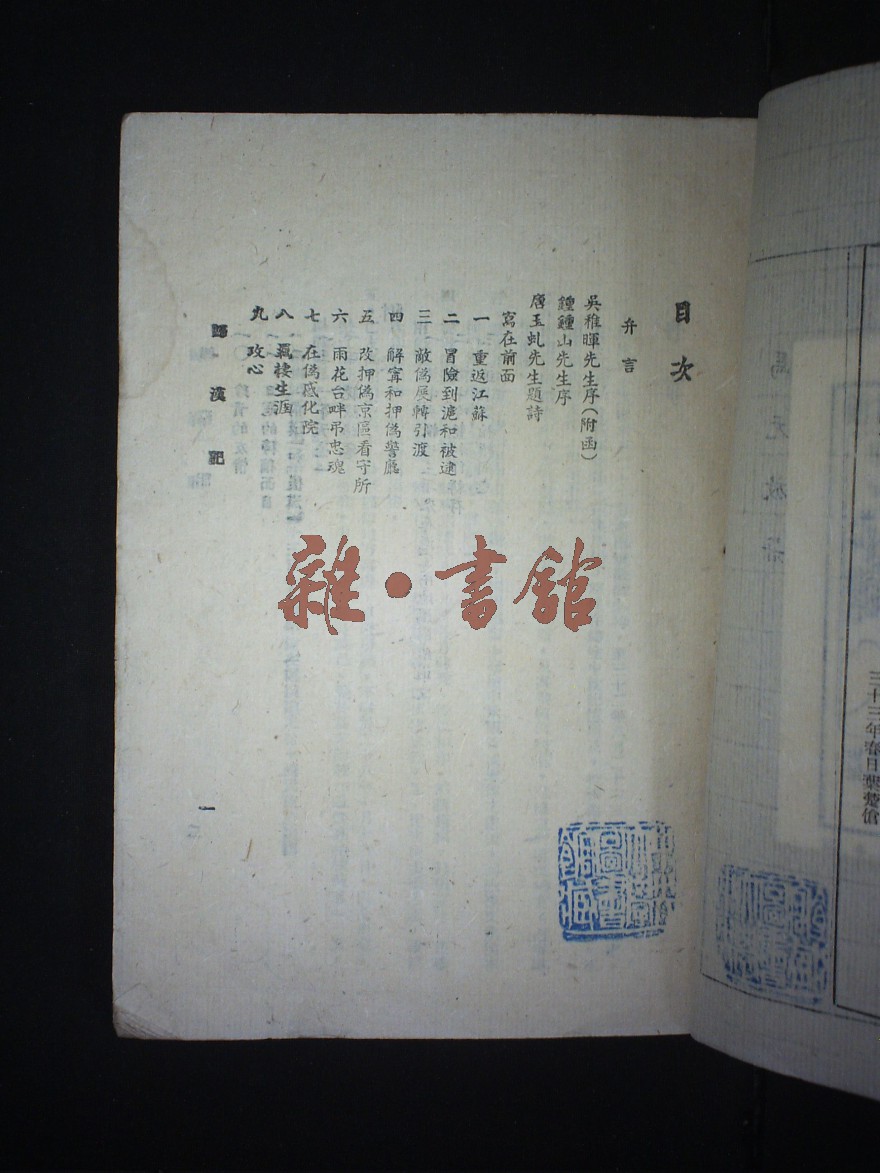 三十三年春日葉楚傖
目次
弁言
吳稚暉先生序(附函)
鍾鍾山先生序
唐玉虬先生題詩
寫在前面
一 重返江蘇
二 冒險到滬和被逮
三 敵偽展轉引渡
四 解寗和押偽警廳
五 改押偽京區看守所
六 雨花台畔弔忠魂
七 在偽感化院
八 羈棲生涯
九 攻心
歸漢記
一
雜·書館